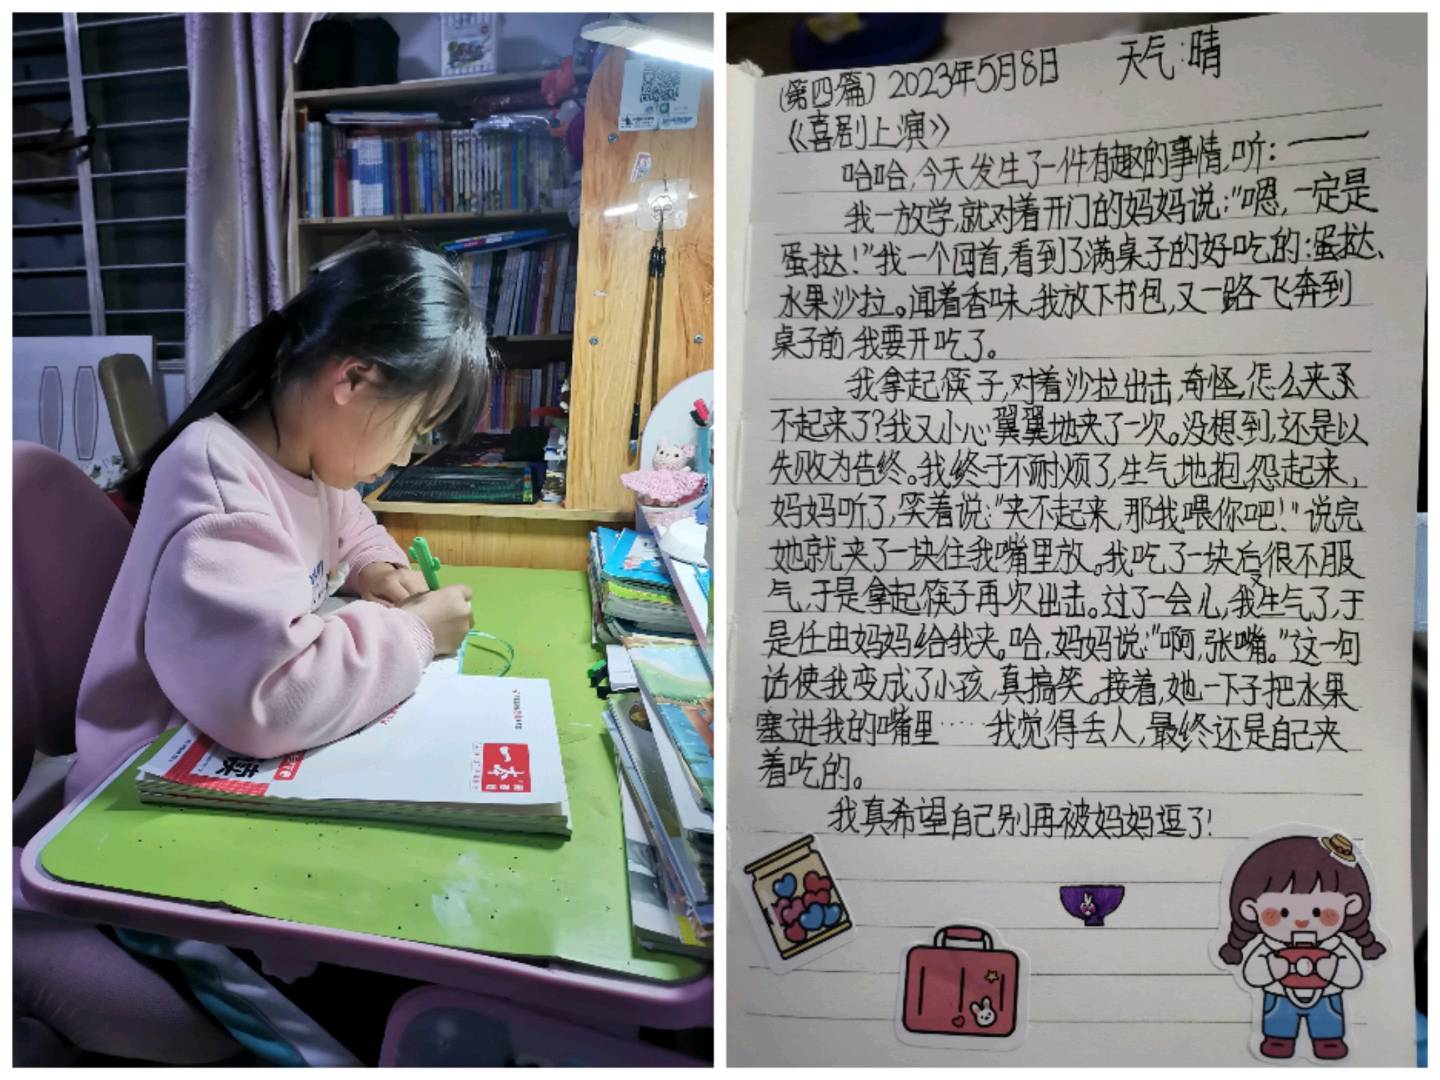 一本
(第四篇) 2023年5月8日 天气:晴
《喜剧上演》
哈哈,今天发生了一件有趣的事情,听:——
我一放学,就对着开门的妈妈说:"嗯,一定是
蛋挞!"我一个回首,看到了满桌子的好吃的:蛋挞、
水果沙拉。闻着香味,我放下书包,又一路飞奔到
桌子前,我要开吃了。
我拿起筷子,对着沙拉出击,奇怪,怎么夹
不起来了?我又小心翼翼地夹了一次。没想到,还是以
失败为告终。我终于不耐烦了,生气地抱怨起来,
妈妈听了,笑着说:"夹不起来,那我喂你吧!"说完
她就夹了一块往我嘴里放。我吃了一块后很不服
气,于是拿起筷子再次出击。过了一会儿,我又生气了,于
是任由妈妈给我夹。哈,妈妈说:"啊,张嘴。"这一句
话使我变成了小孩,真搞笑。接着,她一下子把水果
塞进我的嘴里……我觉得丢人,最终还是自己夹
着吃的。
我真希望自己别再被妈妈逗了!